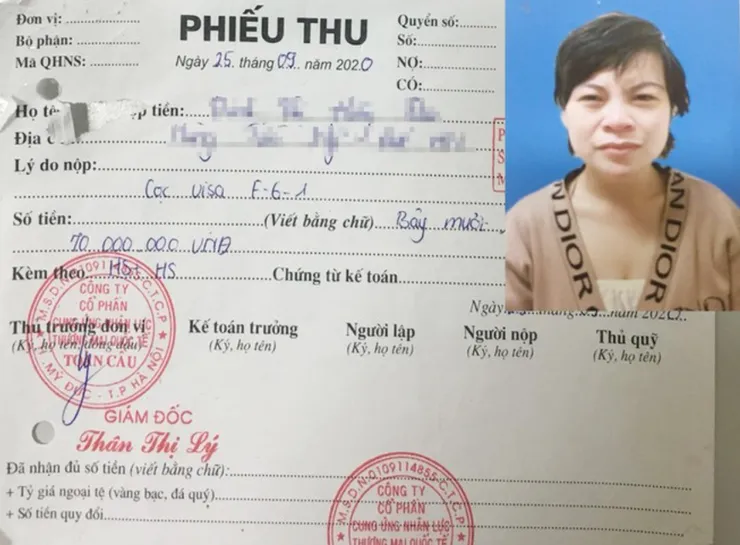 Đơn vị:
Bộ phận:
Mã QHNS:
PHIẾU THU
Ngày 25 tháng 09 năm 2020
Quyển số:
Số:
NỢ:
CÓ:
Họ tê
ộp tiền:
Địa c
Lý do nộp:
Cọc visa F-6-1
Số tiền: (Viết bằng chữ) Bảy mươi
70 000.000 VNĐ
Kèm theo: HS+ HS Chứng từ kế toán.
Ngày
Thủ trưởng đơn vị
(Ký, họ tên, đóng dấu)
Kế toán trưởng
(Ký, họ tên)
Người lập
(Ký, họ tên)
Người nộp
(Ký, họ tên)
Thủ quỹ
(Ký, họ tên)
M.S.D.N:0109114855-C.T.C.P
CÔNG TY
CỔ PHẦN
CUNG ỨNG NHÂN LỰC
THƯƠNG MẠI QUỐC TẾ
TOÀN CẦU
MỸ ĐỨC - T.P HÀ NỘI
GIÁM ĐỐC
Thân Thị Lý
Đã nhận đủ số tiền (viết bằng chữ):
+ Tỷ giá ngoại tệ (vàng bạc, đá quý)
+ Số tiền quy đổi
M.S.D.N:0109114855-C.T.C.P
CÔNG TY
CỔ PHẦN
CUNG ỨNG NHÂN LỰC
THƯƠNG MẠI QUỐC TẾ
AN DIOR
AN DIOR